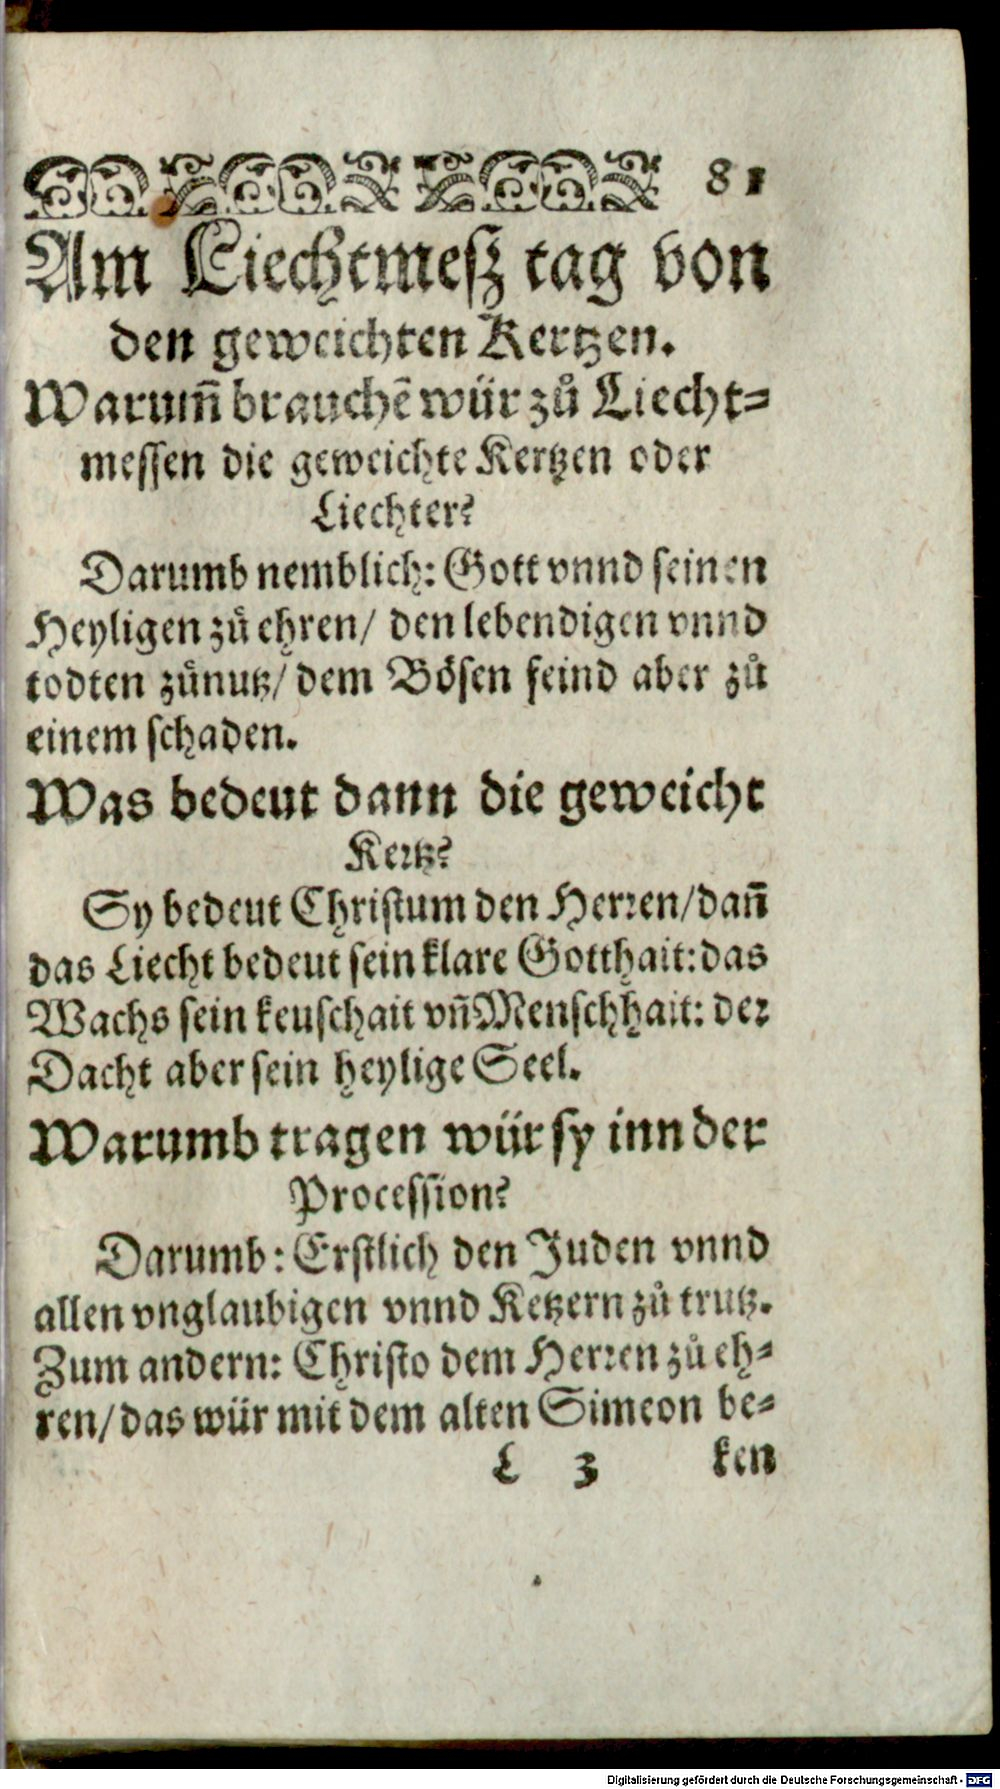 81
Am Liechtmesz tag von
den geweichten Kertzen.
Warum̃ brauchẽ wür zů Liecht-
messen die geweichte Kertzen oder
Liechter?
Darumb nemblich: Gott vnnd seinen
Heyligen zů ehren/ den lebendigen vnnd
todten zůnutz/ dem Bösen feind aber zů
einem schaden.
Was bedeut dann die geweicht
Kertz?
Sy bedeut Christum den Herren/dañ
das Liecht bedeut sein klare Gotthait: das
Wachs sein keuschait vñ Menschhait: der
Dacht aber sein heylige Seel.
Warumb tragen wür sy inn der
Procession?
Darumb: Erstlich den Juden vnnd
allen vnglaubigen vnnd Ketzern zů trutz.
Zum andern: Christo dem Herren zů eh-
ren/ das wür mit dem alten Simeon be-
L 3 ken
Digitalisierung gefördert durch die Deutsche Forschungsgemeinschaft - DFG